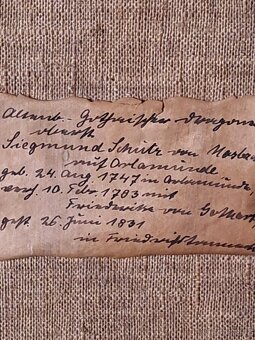 Altenb.-Gothaischer Dragoner
oberst
Siegmund Schütz von Mosbach
auf Orlamünde
geb. 24. Aug 1747 in Orlamünde
verh. 10. Febr 1783 mit
Friederike von
gest. 26. Juni 1831
in